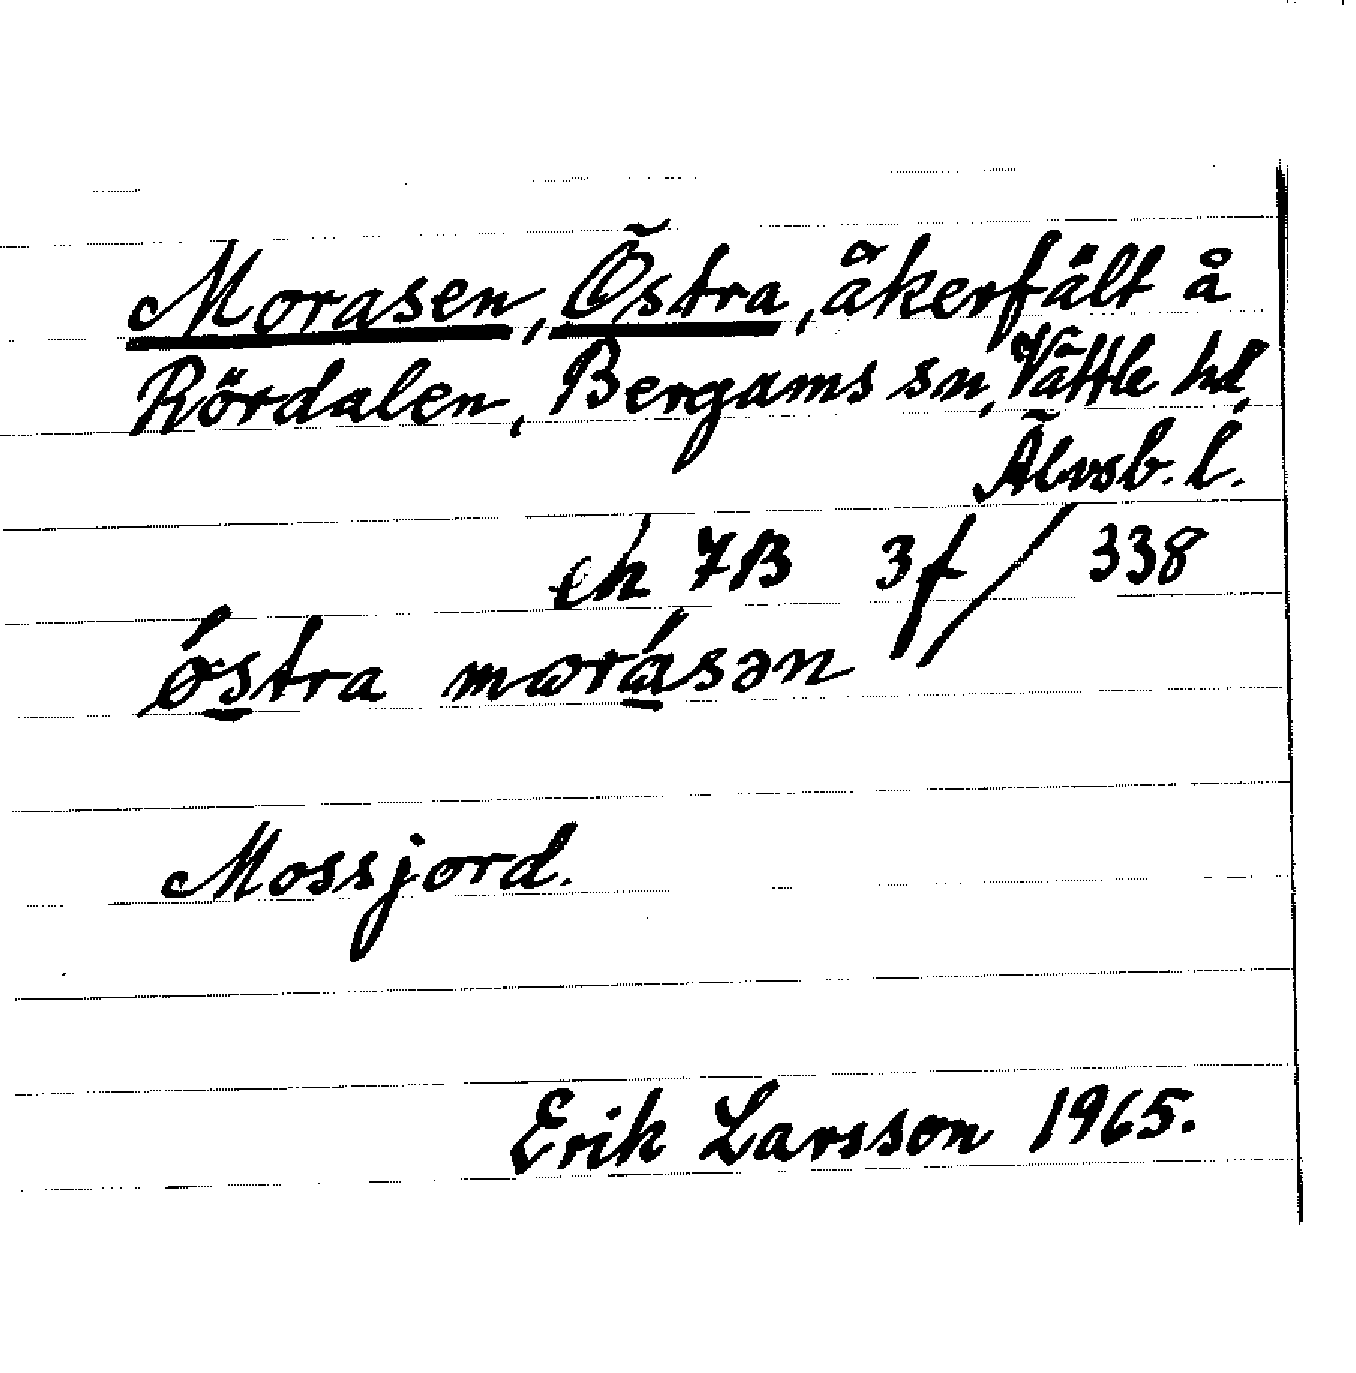 Morasen, Östra, åkerfält å
Rördalen, Bergums sn, Vättle hd,
Älvsb. l.
ek 7B 3f / 338
ǿstra morásən
Mossjord.
Erik Larsson 1965.